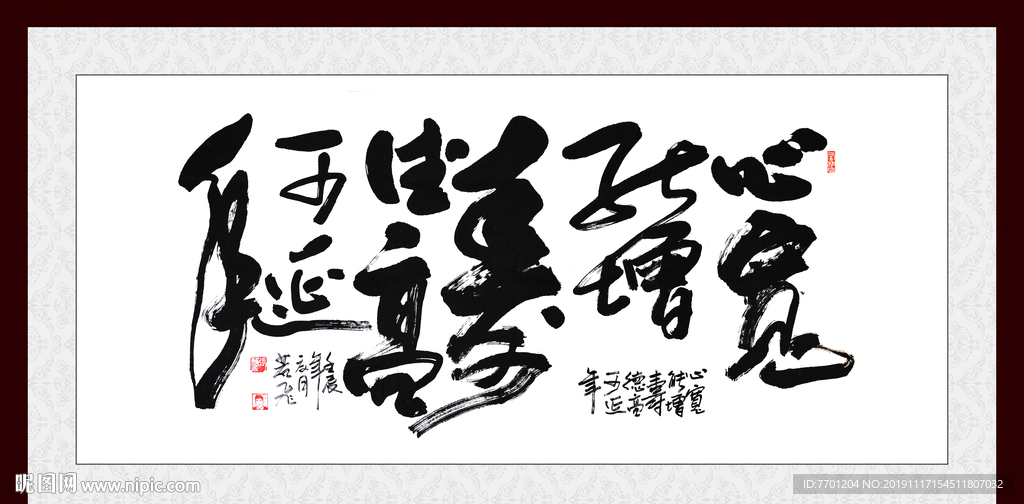 心寬
能增
壽
德高
可延
年
心寬
能增
壽
德高
可延
年
壬辰
年
月
若飞
昵图网 www.nipic.com
ID:7701204 NO:20191117154511807032